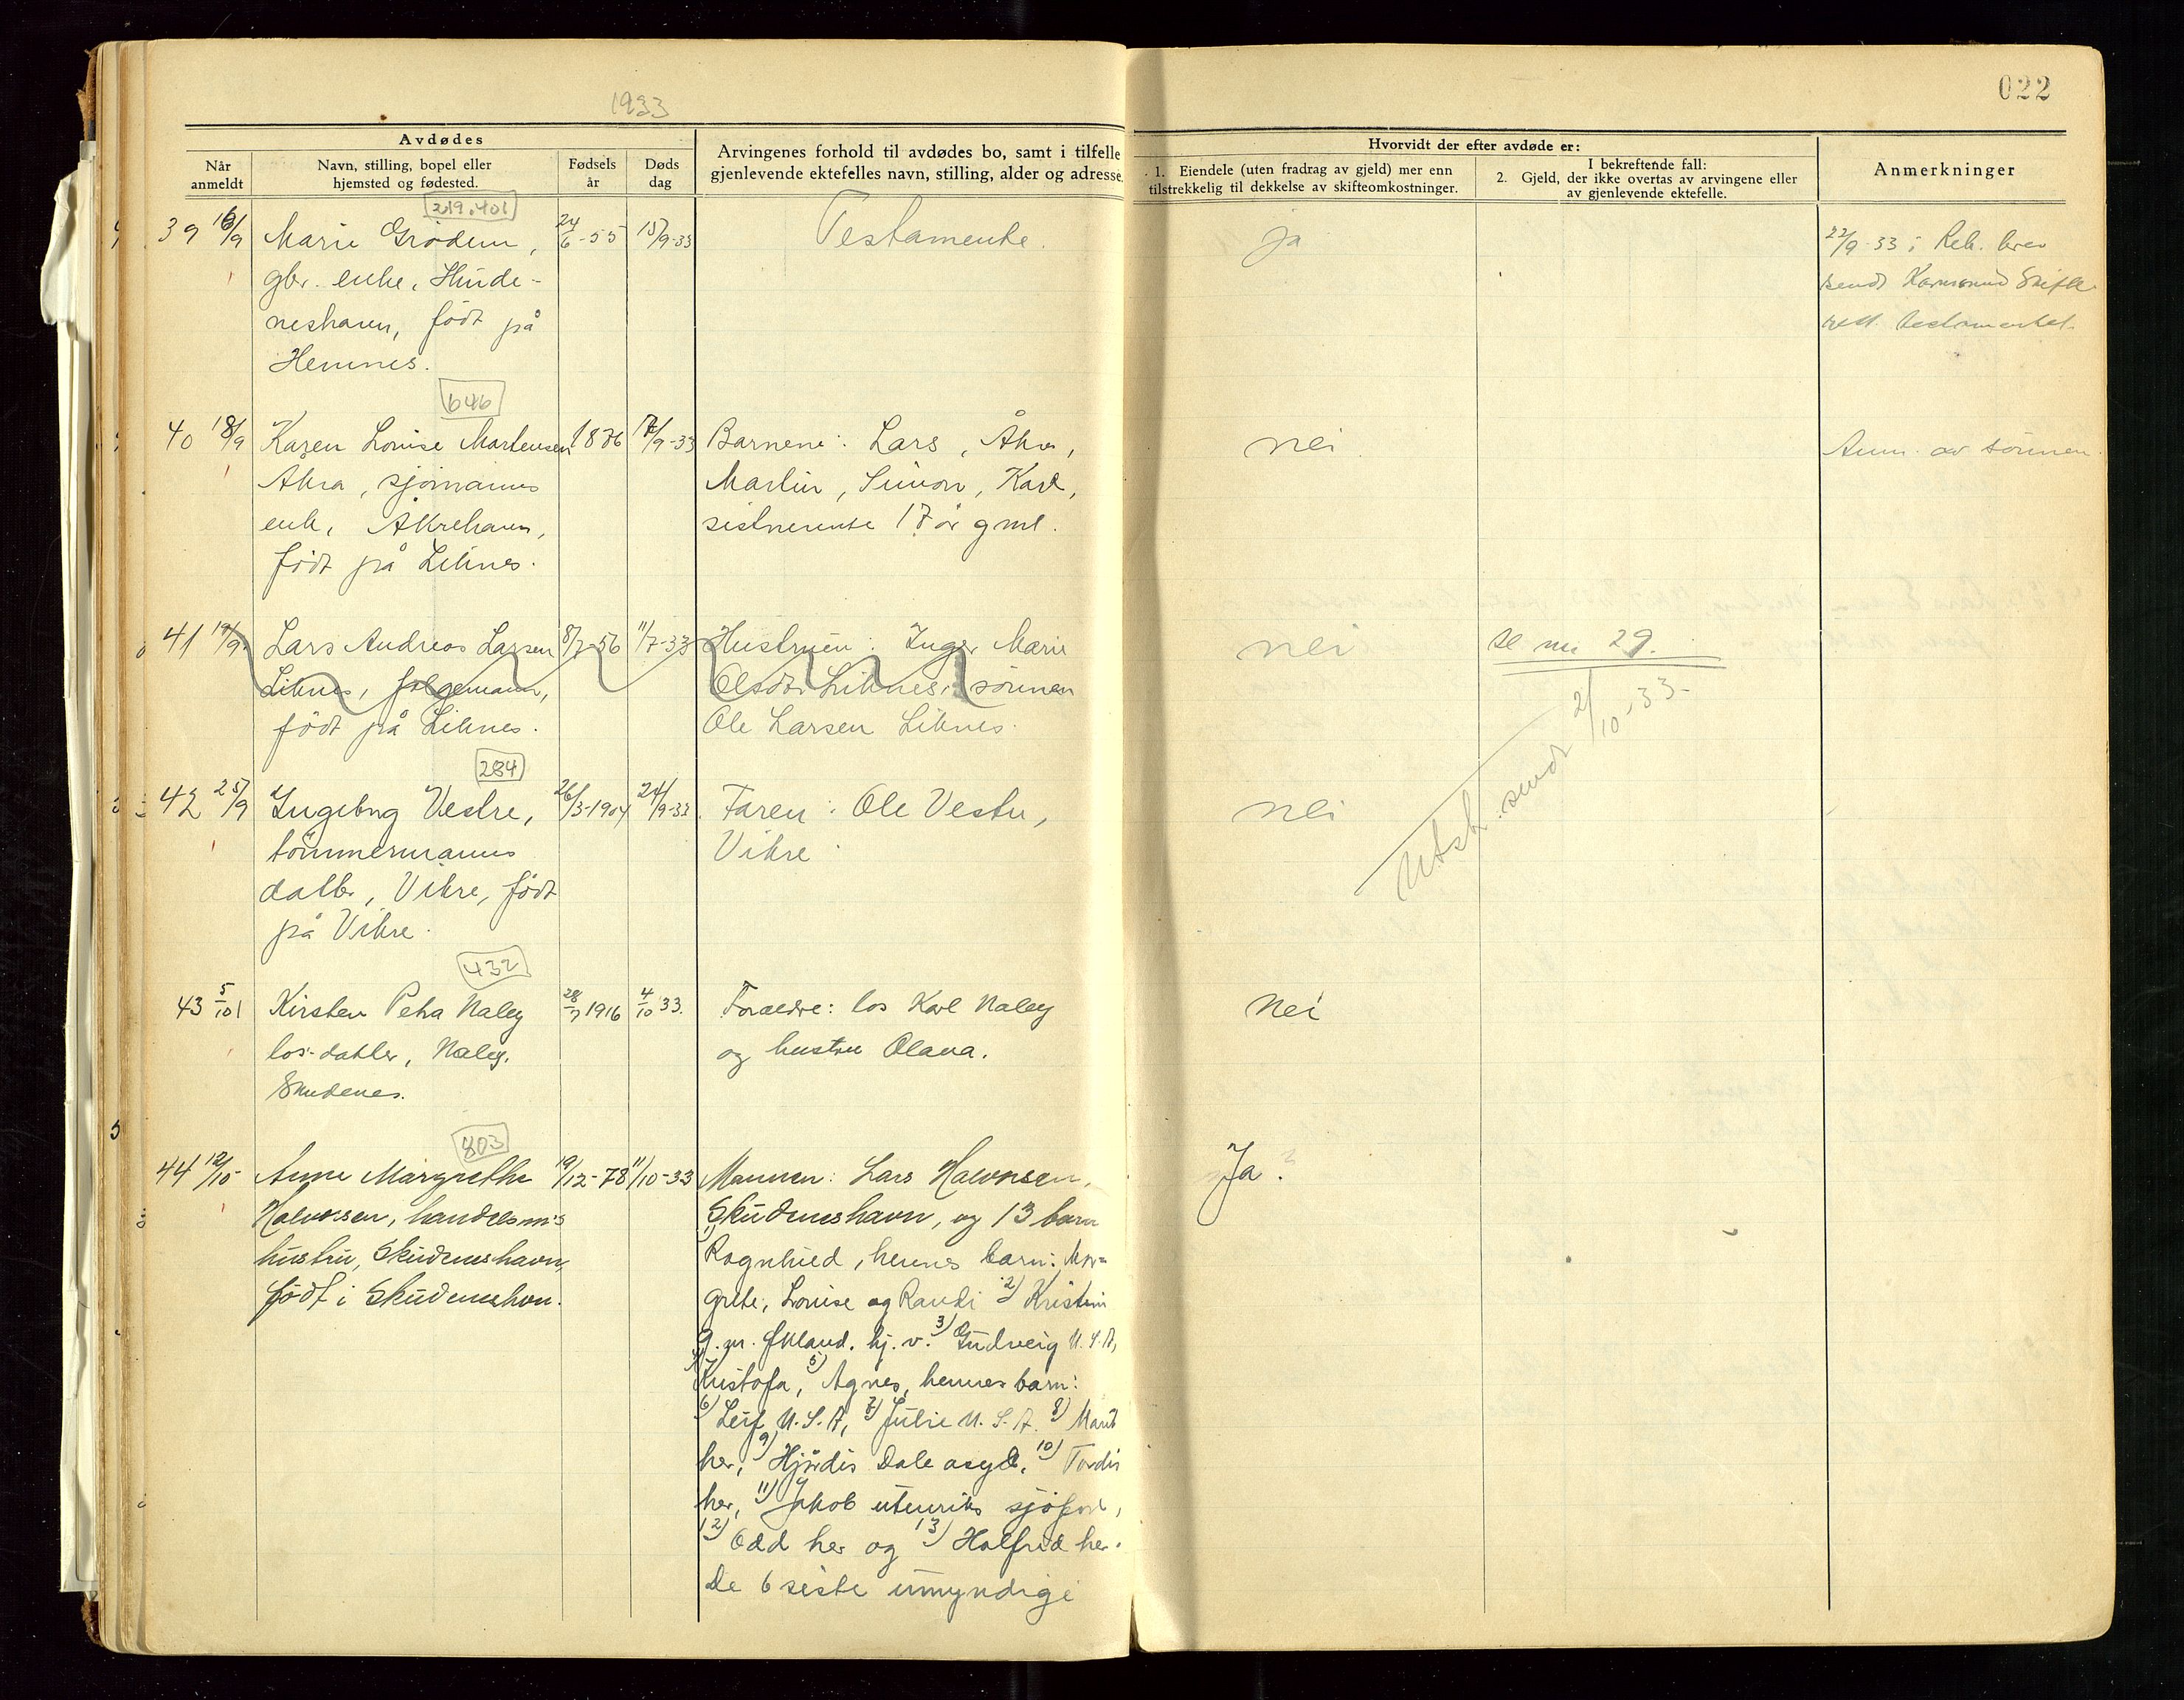 022
1933
Avdødes
Når
anmeldt
Navn, stilling, bopel eller
hjemsted og fødested.
Fødsels
år
Døds
dag
Arvingenes forhold til avdødes bo, samt i tilfelle
gjenlevende ektefelles navn, stilling, alder og adresse.
Hvorvidt der efter avdøde er:
1. Eiendele (uten fradrag av gjeld) mer enn
tilstrekkelig til dekkelse av skifteomkostninger.
I bekreftende fall:
2. Gjeld, der ikke overtas av arvingene eller
av gjenlevende ektefelle.
Anmerkninger
219.401
39 16/9 Marie Grödem, 24/6-55 15/9-33 Testamente. ja 22/9-33 i Rek. brev
gbr. enke, Skude-
sendt Karmsund Skifte
neshavn, født på
rett testamentet.
Hemnes.
646
40 18/9 Karen Louise Martensen 1876 17/9-33 Barnene: Lars, Åkra, nei Anm. av sönnen.
Åkra, sjömanns
Martin, Simon, Karl,
enke, Åkrehavn,
sistnevnte 17 år gml.
født på Liknes.
41 19/9 Lars Andreas Larsen 8/7-56 11/7-33 Hustruen: Inger Marie nei se nr 29.
Liknes, folgemann,
Olsdtr Liknes, sönnen
født på Liknes.
Ole Larsen Liknes.
Utskr. sendt 2/10-33-
284
42 25/9 Ingebrg Vestre, 26/3-1904 24/9-33. Faren: Ole Vestre, nei
tömmermanns
Vikre
datter, Vikre, født
på Vikre.
432
43 5/10 Kirsten Petra Naley 28/7 1916 4/10 33. Foreldre: los Karl Naley nei
los-datter, Naley.
og hustru Olava.
Skudenes.
803
44 12/10 Anne Margrethe 19/12-78 11/10-33 Mannen: Lars Halvorsen, Ja.
Halvorsen, handelsm's
Skudeneshavn, og 13 barn
hustru, Skudeneshavn,
1) Ragnhild, hennes barn: Mar-
født i Skudeneshavn.
grete, Louise og Randi 2) Kristine
g. m. Økland. hj. v. 3) Gudveig U.S.A,
4) Kristofa, 5) Agnes, hennes barn:
6) Leif U.S.A, 7) Julie U.S.A. 8) Marit
her, 9) Hjørdis Dale asyl, 10) Tordis
her, 11) Jakob utenriks sjöfart,
12) Odd her og 13) Halfrid her.
De 6 siste umyndige